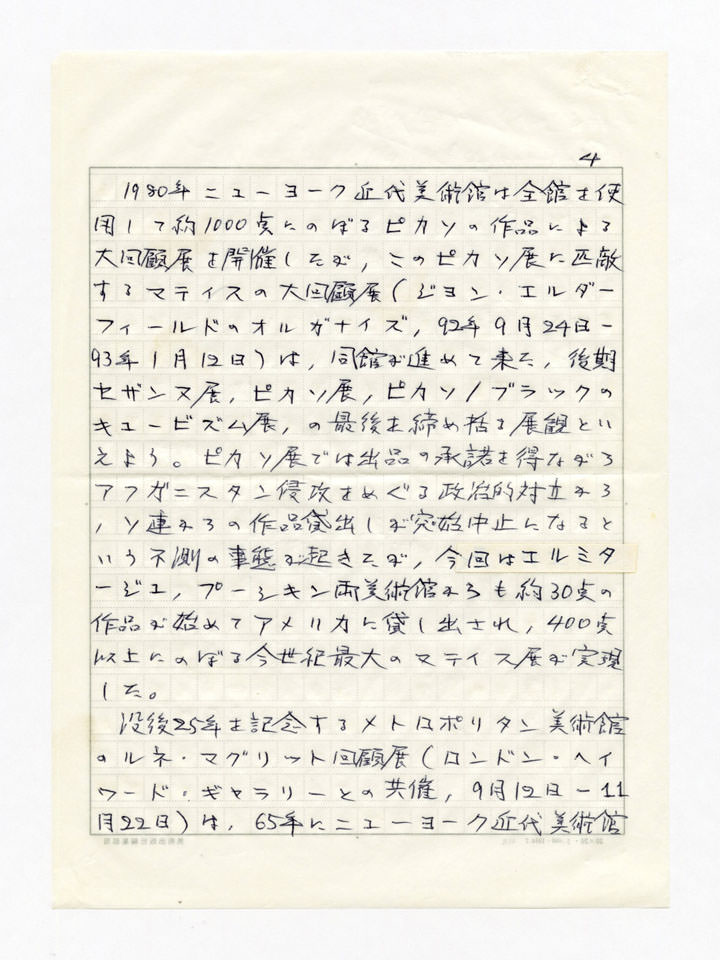 4
1980年ニューヨーク近代美術館は全館を使
用して約1000点にのぼるピカソの作品による
大回顧展を開催したが,このピカソ展に匹敵
するマティスの大回顧展(ジョン・エルダー
フィールドのオルガナイズ,92年9月24日-
93年1月12日)は,同館が進めて来た,後期
セザンヌ展,ピカソ展,ピカソ/ブラックの
キュービズム展,の最後を締め括る展観とい
えよう。ピカソ展では出品の承諾を得ながら
アフガニスタン侵攻をめぐる政治的対立から
,ソ連からの作品貸出しが突如中止になると
いう不測の事態が起きたが,今回はエルミタ
ージュ,プーシキン両美術館からも約30点の
作品が始めてアメリカに貸し出され,400点
以上にのぼる今世紀最大のマティス展が実現
した。
没後25年を記念するメトロポリタン美術館
のルネ・マグリット回顧展(ロンドン・ヘイ
ワード・ギャラリーとの共催,9月12日-11
月22日)は,65年にニューヨーク近代美術館